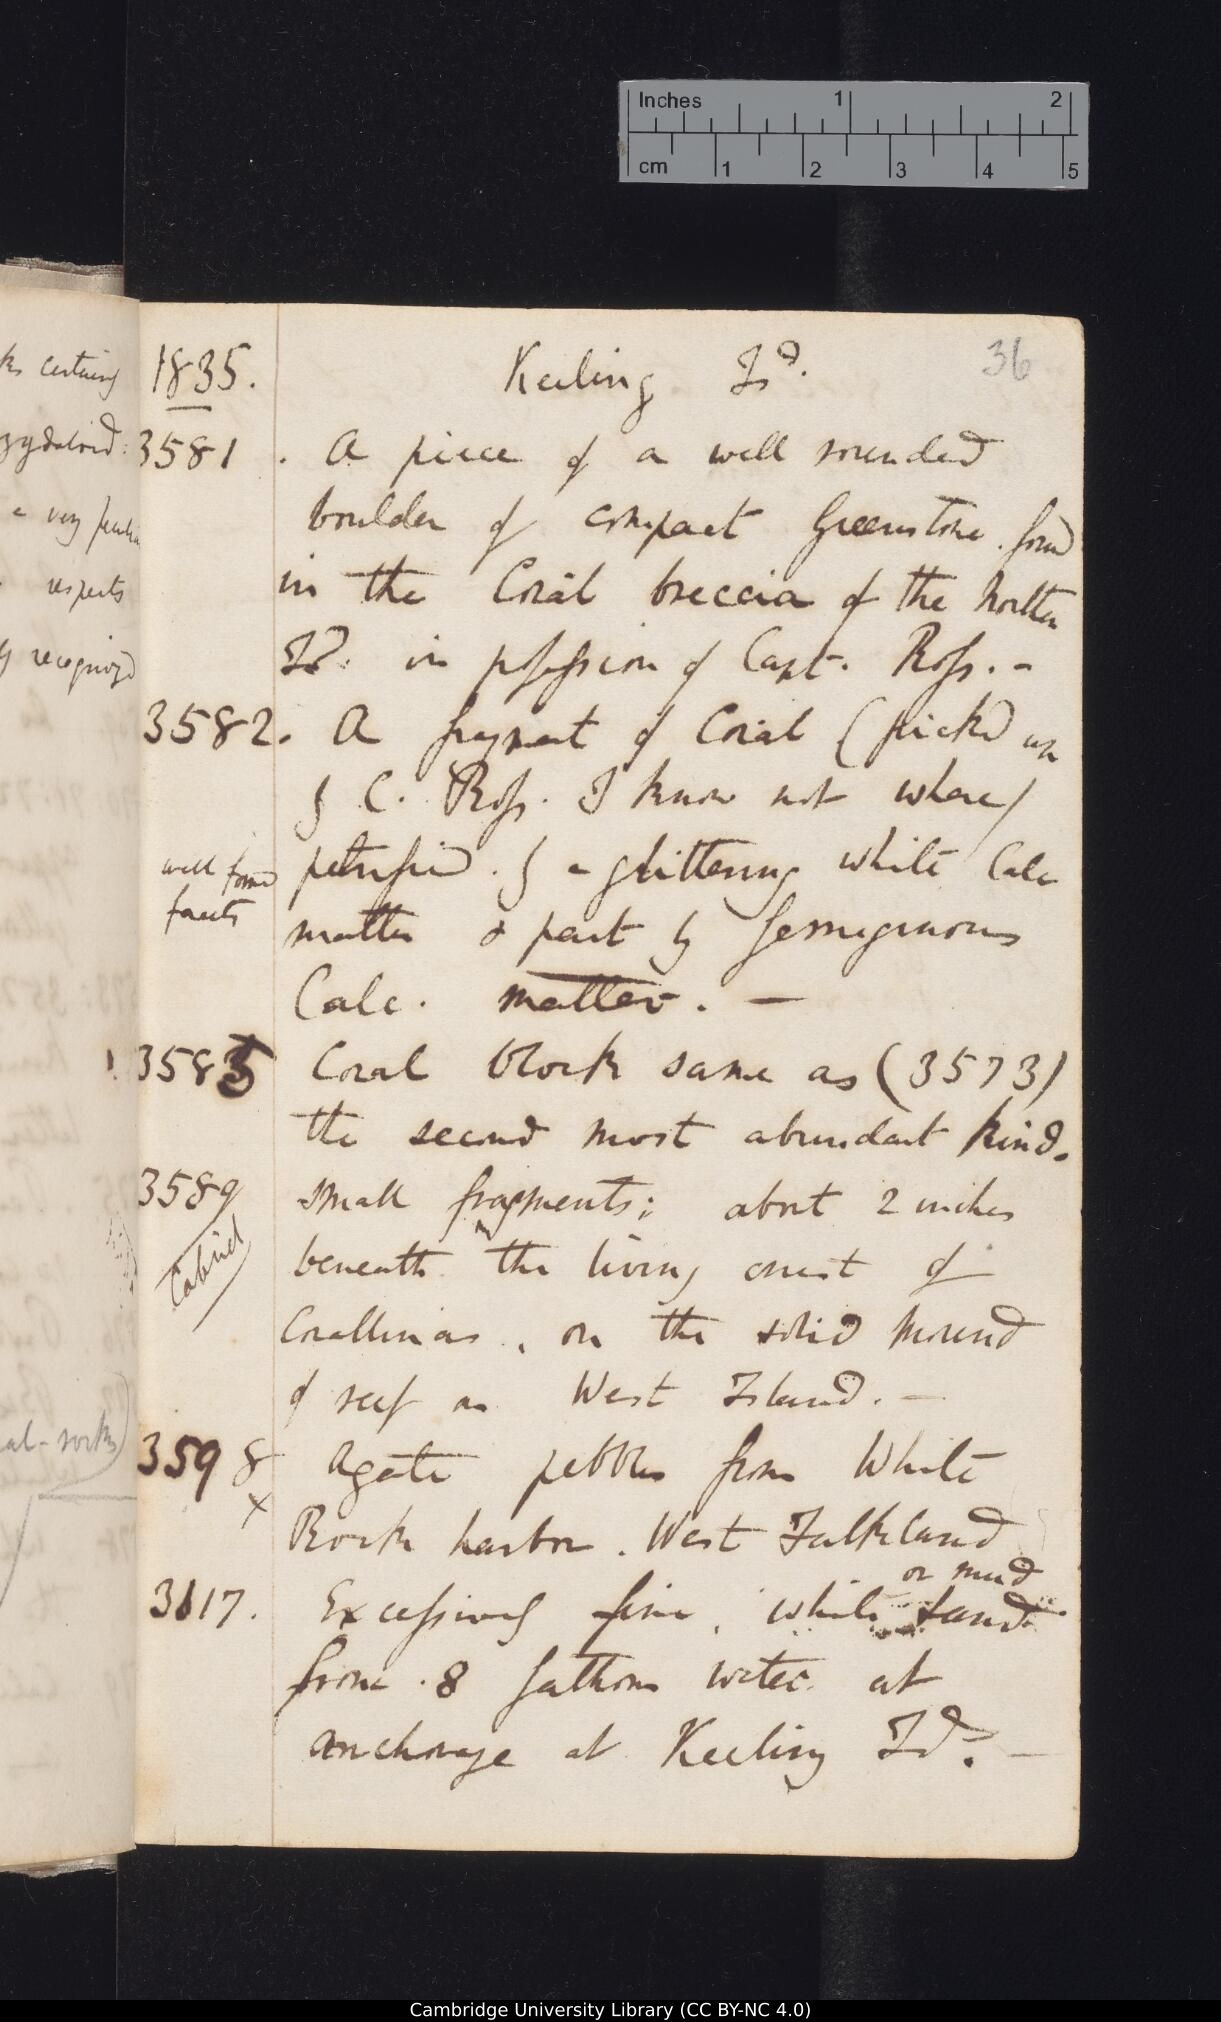 Inches 1 2
cm 1 2 3 4 5
36
1835. Keeling Id.
3581. A piece of a well rounded
boulder of compact Greenstone. found
in the Coral breccia of the Northern
Id. in possession of Capt. Ross. -
3582. A fragment of Coral (picked up
by C. Ross. I know not where)
petrified. by a glittering white Calc
well formed
facets
matter & part by ferruginous
Calc. matter. —
3585 Coral block same as (3573)
the second most abundant kind.
3589 small fragments; about 2 inches
Cabinet
beneath the living crust of
Corallinas, on the solid mound
of reef on West Island. —
3598 Agate pebbles from White
x
Rock harbor. West Falkland
or mud
3617. Excessively fine, white sand
from 8 fathoms water at
anchorage at Keeling Id. —
ks certainly
amygdaloid:
a very peculiar
respects
recognized
al-rocks)
Cambridge University Library (CC BY-NC 4.0)